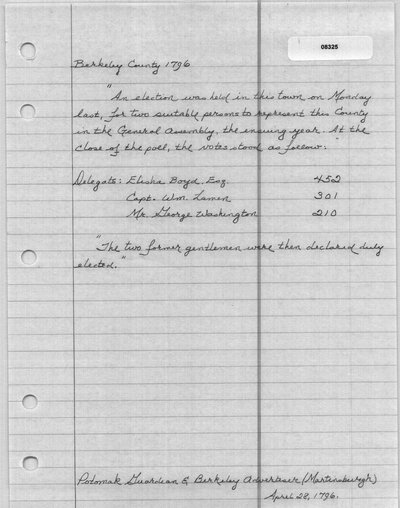 08325
Berkeley County 1796
"An election was held in this town on Monday
last, for two suitable persons to represent this County
in the General Assembly, the ensuing year. At the
close of the poll, the votes stood as follow:"
Delegats: Elisha Boyd, Esq. 452
Capt. Wm. Lamen 301
Mr. George Washington 210
"The two former gentlemen were then declared duly
elected."
Potomak Guardian & Berkeley Advertiser (Martinsburgh)
April 28, 1796.